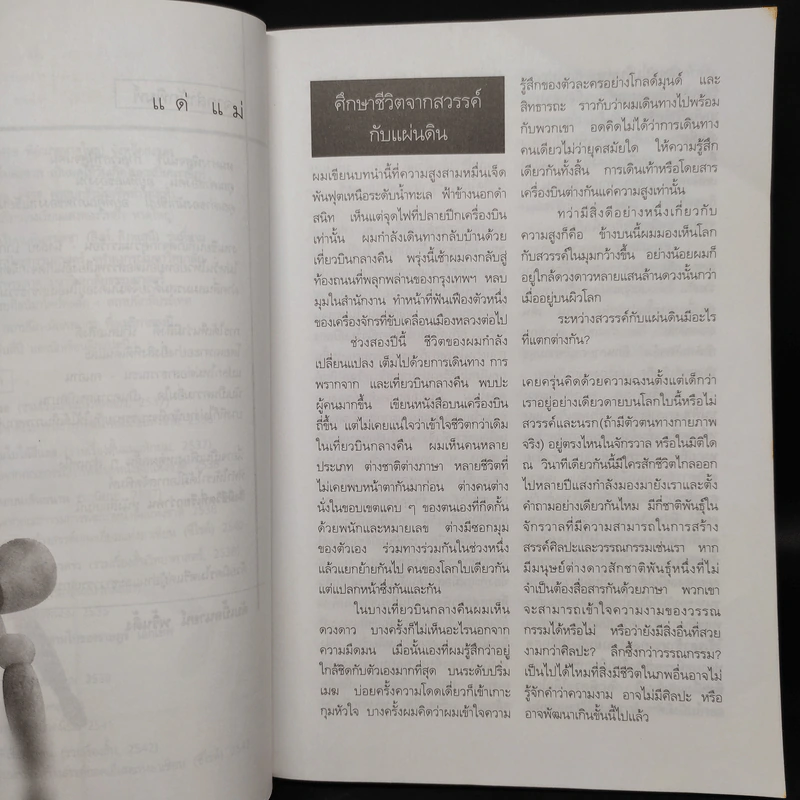 แด่ แม่
ศึกษาชีวิตจากสวรรค์
กับแผ่นดิน
ผมเขียนบทนำนี้ที่ความสูงสามหมื่นเจ็ด
พันฟุตเหนือระดับน้ำทะเล ฟ้าข้างนอกดำ
สนิท เห็นแต่จุดไฟที่ปลายปีกเครื่องบิน
เท่านั้น ผมกำลังเดินทางกลับบ้านด้วย
เที่ยวบินกลางคืน พรุ่งนี้เช้าผมคงกลับสู่
ท้องถนนที่พลุกพล่านของกรุงเทพฯ หลบ
มุมในสำนักงาน ทำหน้าที่ฟันเฟืองตัวหนึ่ง
ของเครื่องจักรที่ขับเคลื่อนเมืองหลวงต่อไป
ช่วงสองปีนี้ ชีวิตของผมกำลัง
เปลี่ยนแปลง เต็มไปด้วยการเดินทาง การ
พรากจาก และเที่ยวบินกลางคืน พบปะ
ผู้คนมากขึ้น เขียนหนังสือบนเครื่องบิน
ถี่ขึ้น แต่ไม่เคยแน่ใจว่าเข้าใจชีวิตกว่าเดิม
ในเที่ยวบินกลางคืน ผมเห็นคนหลาย
ประเภท ต่างชาติต่างภาษา หลายชีวิตที่
ไม่เคยพบหน้าตากันมาก่อน ต่างคนต่าง
นั่งในขอบเขตแคบ ๆ ของตนเองที่กีดกั้น
ด้วยพนักและหมายเลข ต่างมีซอกมุม
ของตัวเอง ร่วมทางร่วมกันในช่วงหนึ่ง
แล้วแยกย้ายกันไป คนของโลกใบเดียวกัน
แต่แปลกหน้าซึ่งกันและกัน
ในบางเที่ยวบินกลางคืนผมเห็น
ดวงดาว บางครั้งก็ไม่เห็นอะไรนอกจาก
ความมืดมน เมื่อนั้นเองที่ผมรู้สึกว่าอยู่
ใกล้ชิดกับตัวเองมากที่สุด บนระดับปริ่ม
เมฆ บ่อยครั้งความโดดเดี่ยวก็เข้าเกาะ
กุมหัวใจ บางครั้งผมคิดว่าผมเข้าใจความ
รู้สึกของตัวละครอย่างโกลด์มุนด์ และ
สิทธารถะ ราวกับว่าผมเดินทางไปพร้อม
กับพวกเขา อดคิดไม่ได้ว่าการเดินทาง
คนเดียวไม่ว่ายุคสมัยใด ให้ความรู้สึก
เดียวกันทั้งสิ้น การเดินเท้าหรือโดยสาร
เครื่องบินต่างกันแค่ความสูงเท่านั้น
ทว่ามีสิ่งดีอย่างหนึ่งเกี่ยวกับ
ความสูงก็คือ ข้างบนนี้ผมมองเห็นโลก
กับสวรรค์ในมุมกว้างขึ้น อย่างน้อยผมก็
อยู่ใกล้ดวงดาวหลายแสนล้านดวงนั้นกว่า
เมื่ออยู่บนผิวโลก
ระหว่างสวรรค์กับแผ่นดินมีอะไร
ที่แตกต่างกัน?
เคยครุ่นคิดด้วยความฉงนตั้งแต่เด็กว่า
เราอยู่อย่างเดียวดายบนโลกใบนี้หรือไม่
สวรรค์และนรก(ถ้ามีตัวตนทางกายภาพ
จริง) อยู่ตรงไหนในจักรวาล หรือในมิติใด
ณ วินาทีเดียวกันนี้มีใครสักชีวิตไกลออก
ไปหลายปีแสงกำลังมองมายังเราและตั้ง
คำถามอย่างเดียวกันไหม มีกี่ชาติพันธุ์ใน
จักรวาลที่มีความสามารถในการสร้าง
สรรค์ศิลปะและวรรณกรรมเช่นเรา หาก
มีมนุษย์ต่างดาวสักชาติพันธุ์หนึ่งที่ไม่
จำเป็นต้องสื่อสารกันด้วยภาษา พวกเขา
จะสามารถเข้าใจความงามของวรรณ
กรรมได้หรือไม่ หรือว่ายังมีสิ่งอื่นที่สวย
งามกว่าศิลปะ? ลึกซึ้งกว่าวรรณกรรม?
เป็นไปได้ไหมที่สิ่งมีชีวิตในภพอื่นอาจไม่
รู้จักคำว่าความงาม อาจไม่มีศิลปะ หรือ
อาจพัฒนาเกินขั้นนี้ไปแล้ว